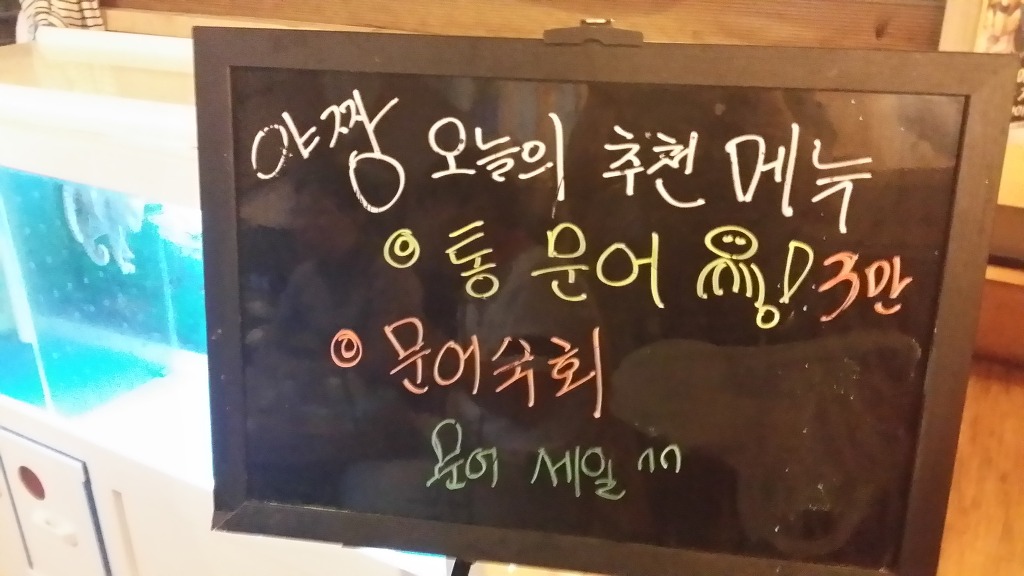 아짱 오늘의 추천 메뉴
◎ 통 문어 ! 3만
◎ 문어숙회
문어 세일 ^^